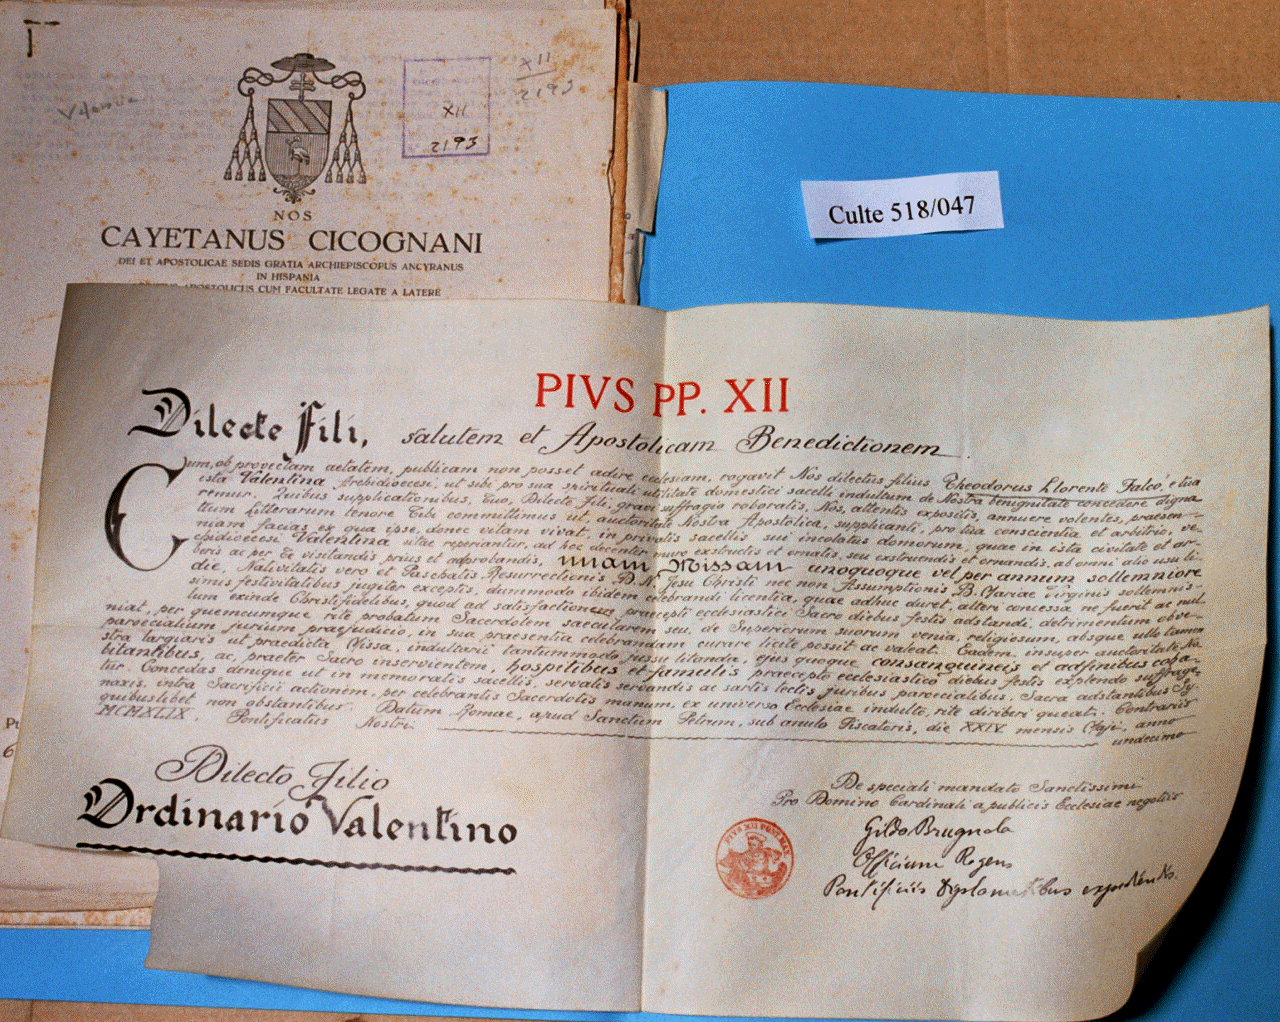 Valencia
XII
2193
XII
2193
NOS
CAYETANUS CICOGNANI
DEI ET APOSTOLICAE SEDIS GRATIA ARCHIEPISCOPUS ANCYRANUS
IN HISPANIA
APOSTOLICUS CUM FACULTATE LEGATE A LATERE
Culte 518/047
PIVS PP. XII
Dilecte Fili, salutem et Apostolicam Benedictionem
Cum, ob provectam aetatem, publicam non posset adire ecclesiam, rogavit Nos dilectus filius Theodorus Llorente Falcó, e tua
ista Valentina Archidioecesi, ut sibi pro sua spirituali utilitate domestici sacelli indultum de Nostra benignitate concedere digna
remur. Quibus supplicationibus, tuo, Dilecte Fili, gravi suffragio roboratis, Nos, attentis expositis, annuere volentes, praesen-
tium Litterarum tenore Tibi committimus ut, auctoritate Nostra Apostolica, supplicanti, pro tua conscientia et arbitrio, ve-
niam facias ex qua ipse, donec vitam vivat, in privatis sacellis sui incolatus domorum, quae in ista civitate et ar-
chidioecesi Valentina sitae reperiantur, ad hoc decenter muro exstructis et ornatis, seu exstruendis et ornandis, ab omni alio usu li-
beris ac per te visitandis prius et adprobandis, unam Missam unoquoque vel per annum sollemniore
die, Nativitatis vero et Paschalis Resurrectionis D. N. Jesu Christi nec non Assumptionis B. Mariae Virginis sollemnis-
simis festivitatibus jugiter exceptis, dummodo ibidem celebrandi licentia, quae adhuc duret, alteri concessa ne fuerit ac nul-
lum exinde Christifidelibus, quod ad satisfactionem praecepti ecclesiastici Sacro diebus festis adstandi, detrimentum obve-
niat, per quemcumque rite probatum Sacerdotem saecularem seu, de Superiorum suorum venia, religiosum, absque ullo tamen
paroecialium jurium praejudicio, in sua praesentia celebrandam curare licite possit ac valeat. Eadem insuper auctoritate No
stra largiaris ut praedicta Missa, indultarii tantummodo jussu litanda, ejus quoque consanguineis et adfinibus coha-
bitantibus, ac, praeter Sacro inservientem, hospitibus et famulis praecepto ecclesiastico diebus festis explendo suffrage
tur. Concedas denique ut in memoratis sacellis, servatis servandis ac sartis tectis juribus paroecialibus, Sacra adstantibus Sy-
naxis, intra Sacrificii actionem, per celebrantis Sacerdotis manum, ex universo Ecclesiae indulto, rite diriberi queat. Contrariis
quibuslibet non obstantibus. Datum Romae, apud Sanctum Petrum, sub anulo Piscatoris, die XXIV mensis Maji, anno
MCMXLIX. Pontificatus Nostri undecimo
Dilecto Filio
Ordinario Valentino
De speciali mandato Sanctissimi
Pro Domino Cardinali a publicis Ecclesiae negotiis
Gildo Brugnola
Officium Regens
Pontificiis diplomatibus expediendis.
PIVS XII PONT. MAX.